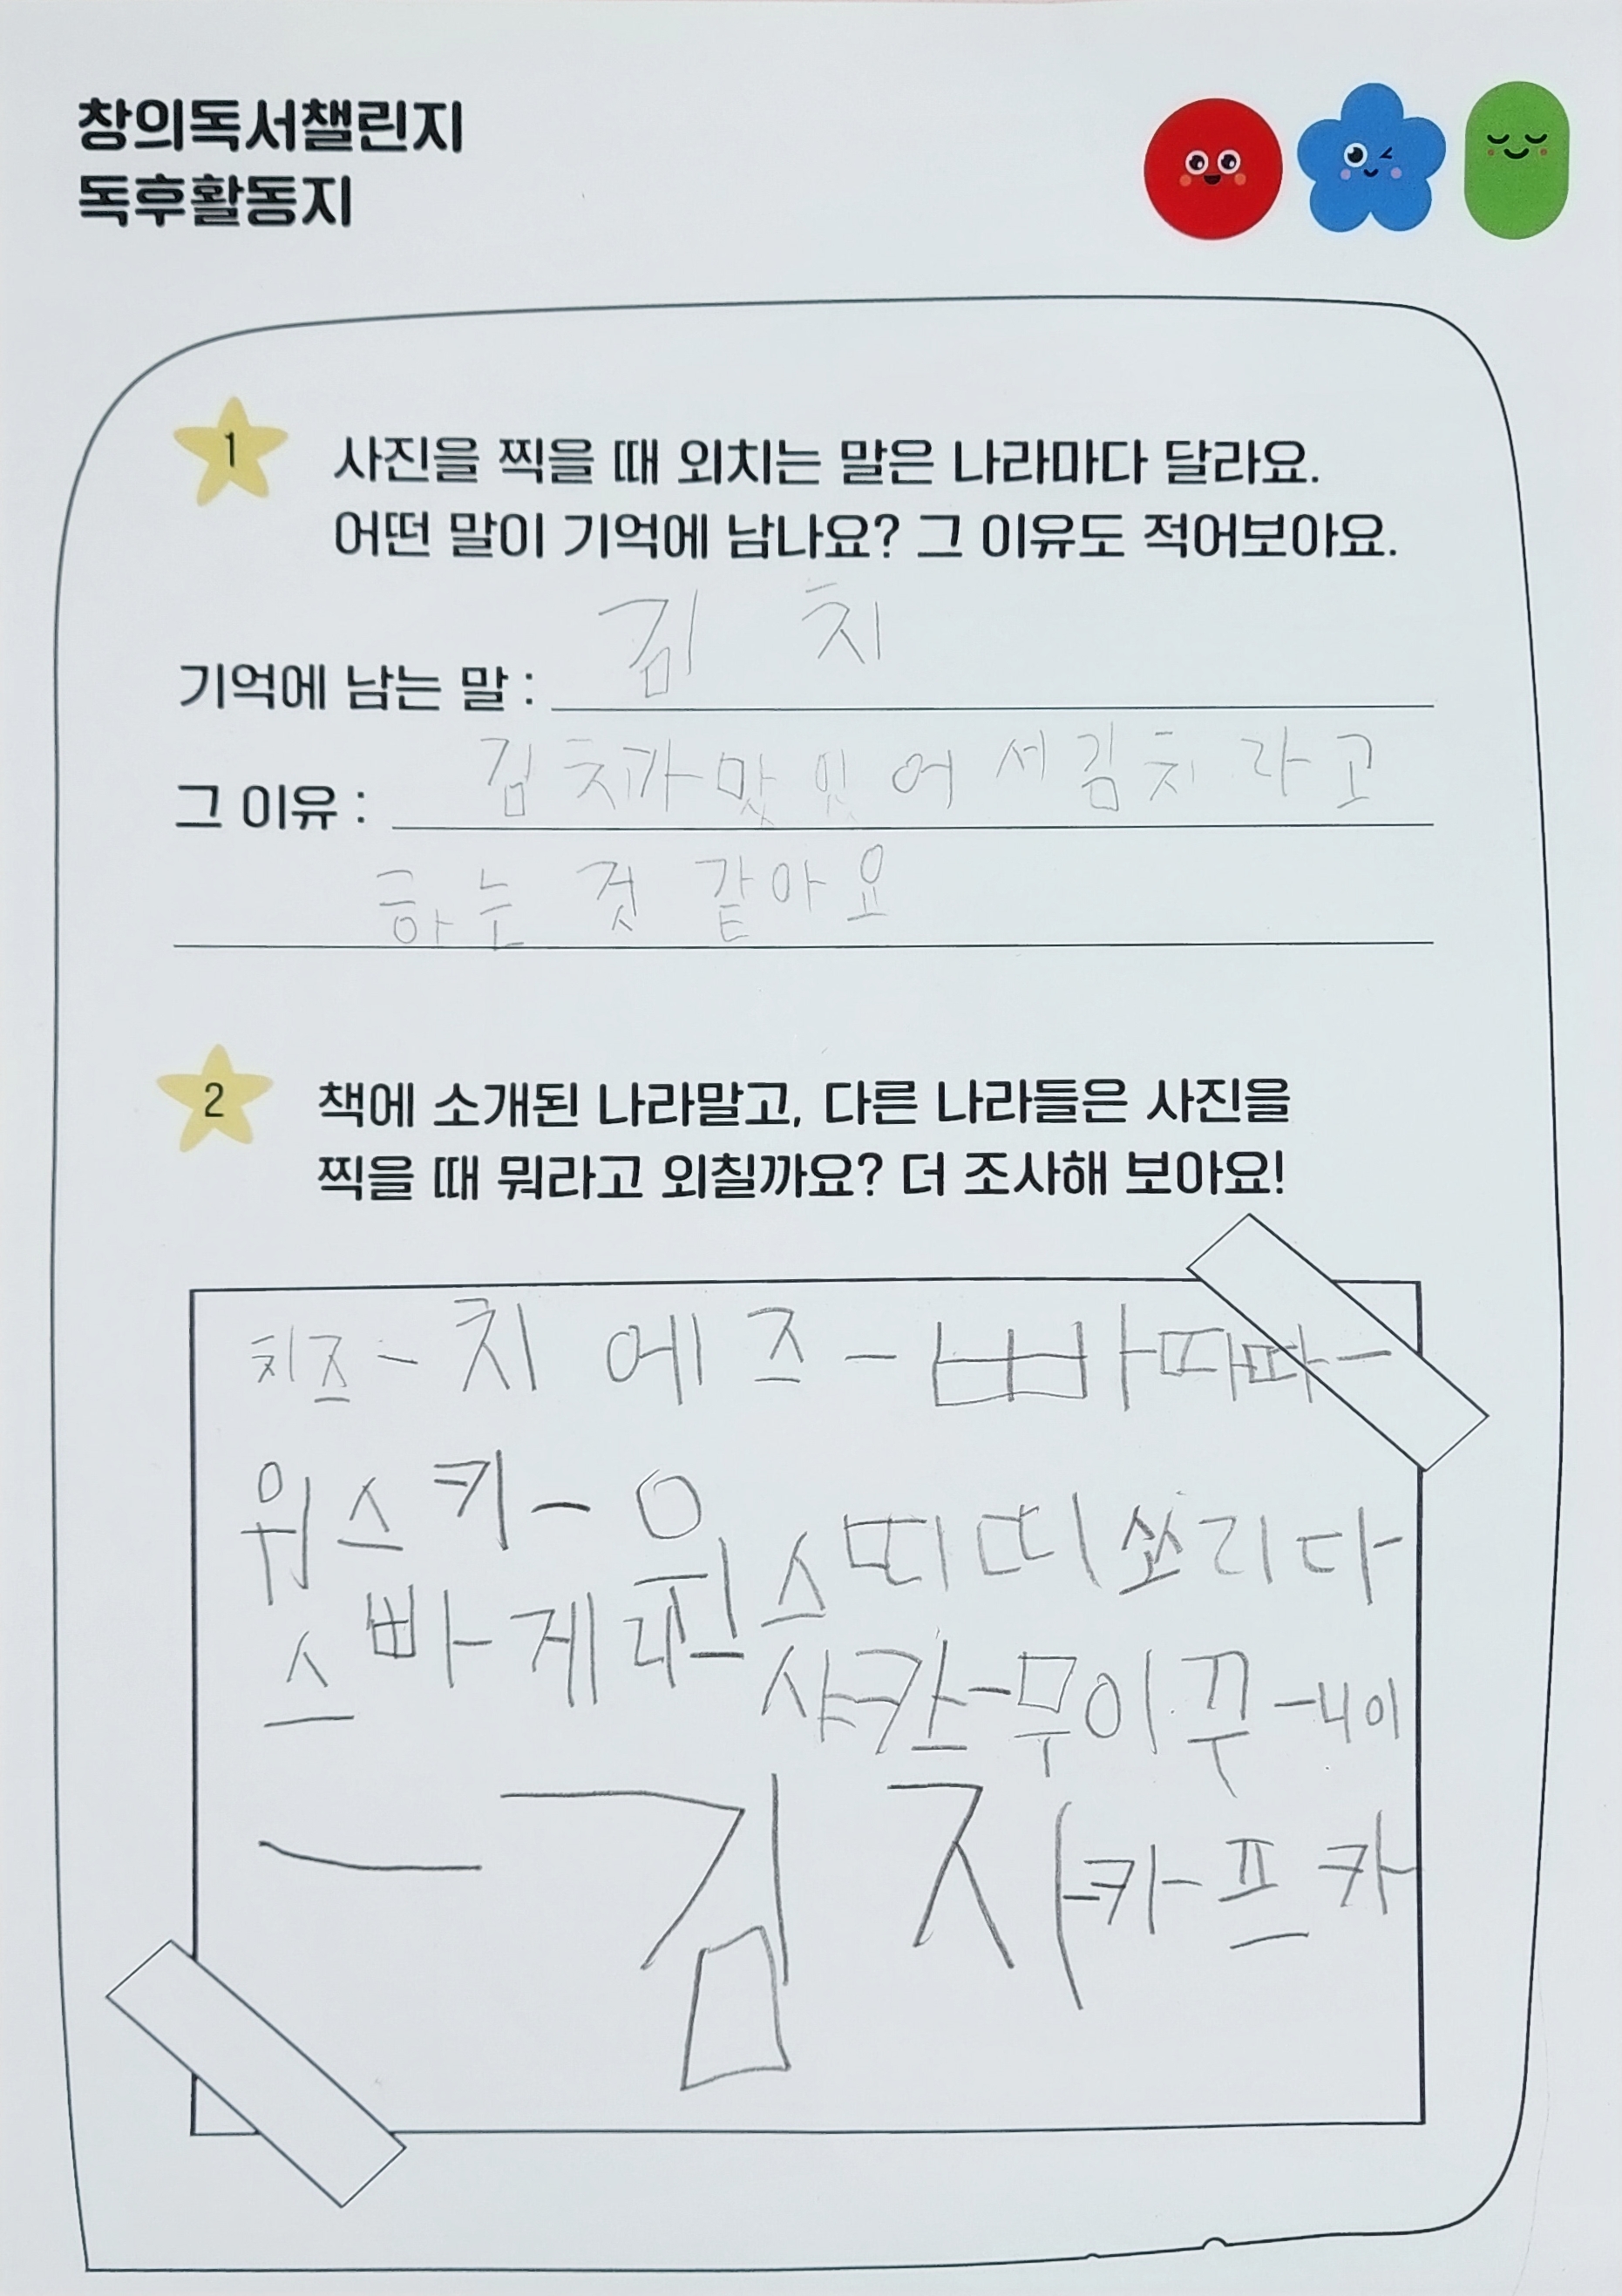 창의독서챌린지
독후활동지
1
사진을 찍을 때 외치는 말은 나라마다 달라요.
어떤 말이 기억에 남나요? 그 이유도 적어보아요.
김 치
기억에 남는 말 :
김치가 맛있어서 김치라고
그 이유 :
하는 것 같아요
2
책에 소개된 나라말고, 다른 나라들은 사진을
찍을 때 뭐라고 외칠까요? 더 조사해 보아요!
치즈 - 치에즈 - 빠따따 -
위스키 - 우스띠띠쏘리다
스빠게띠 스
샤칸 - 무이꾸 - 니이
- 김치 카프카